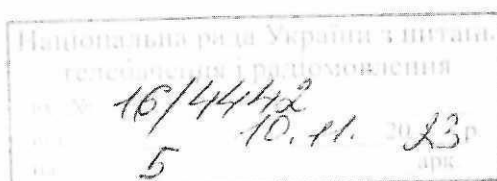 Національна рада України з питань
телебачення і радіомовлення
Вх. № 16/4442
10.11. 2023 р
5 арк.